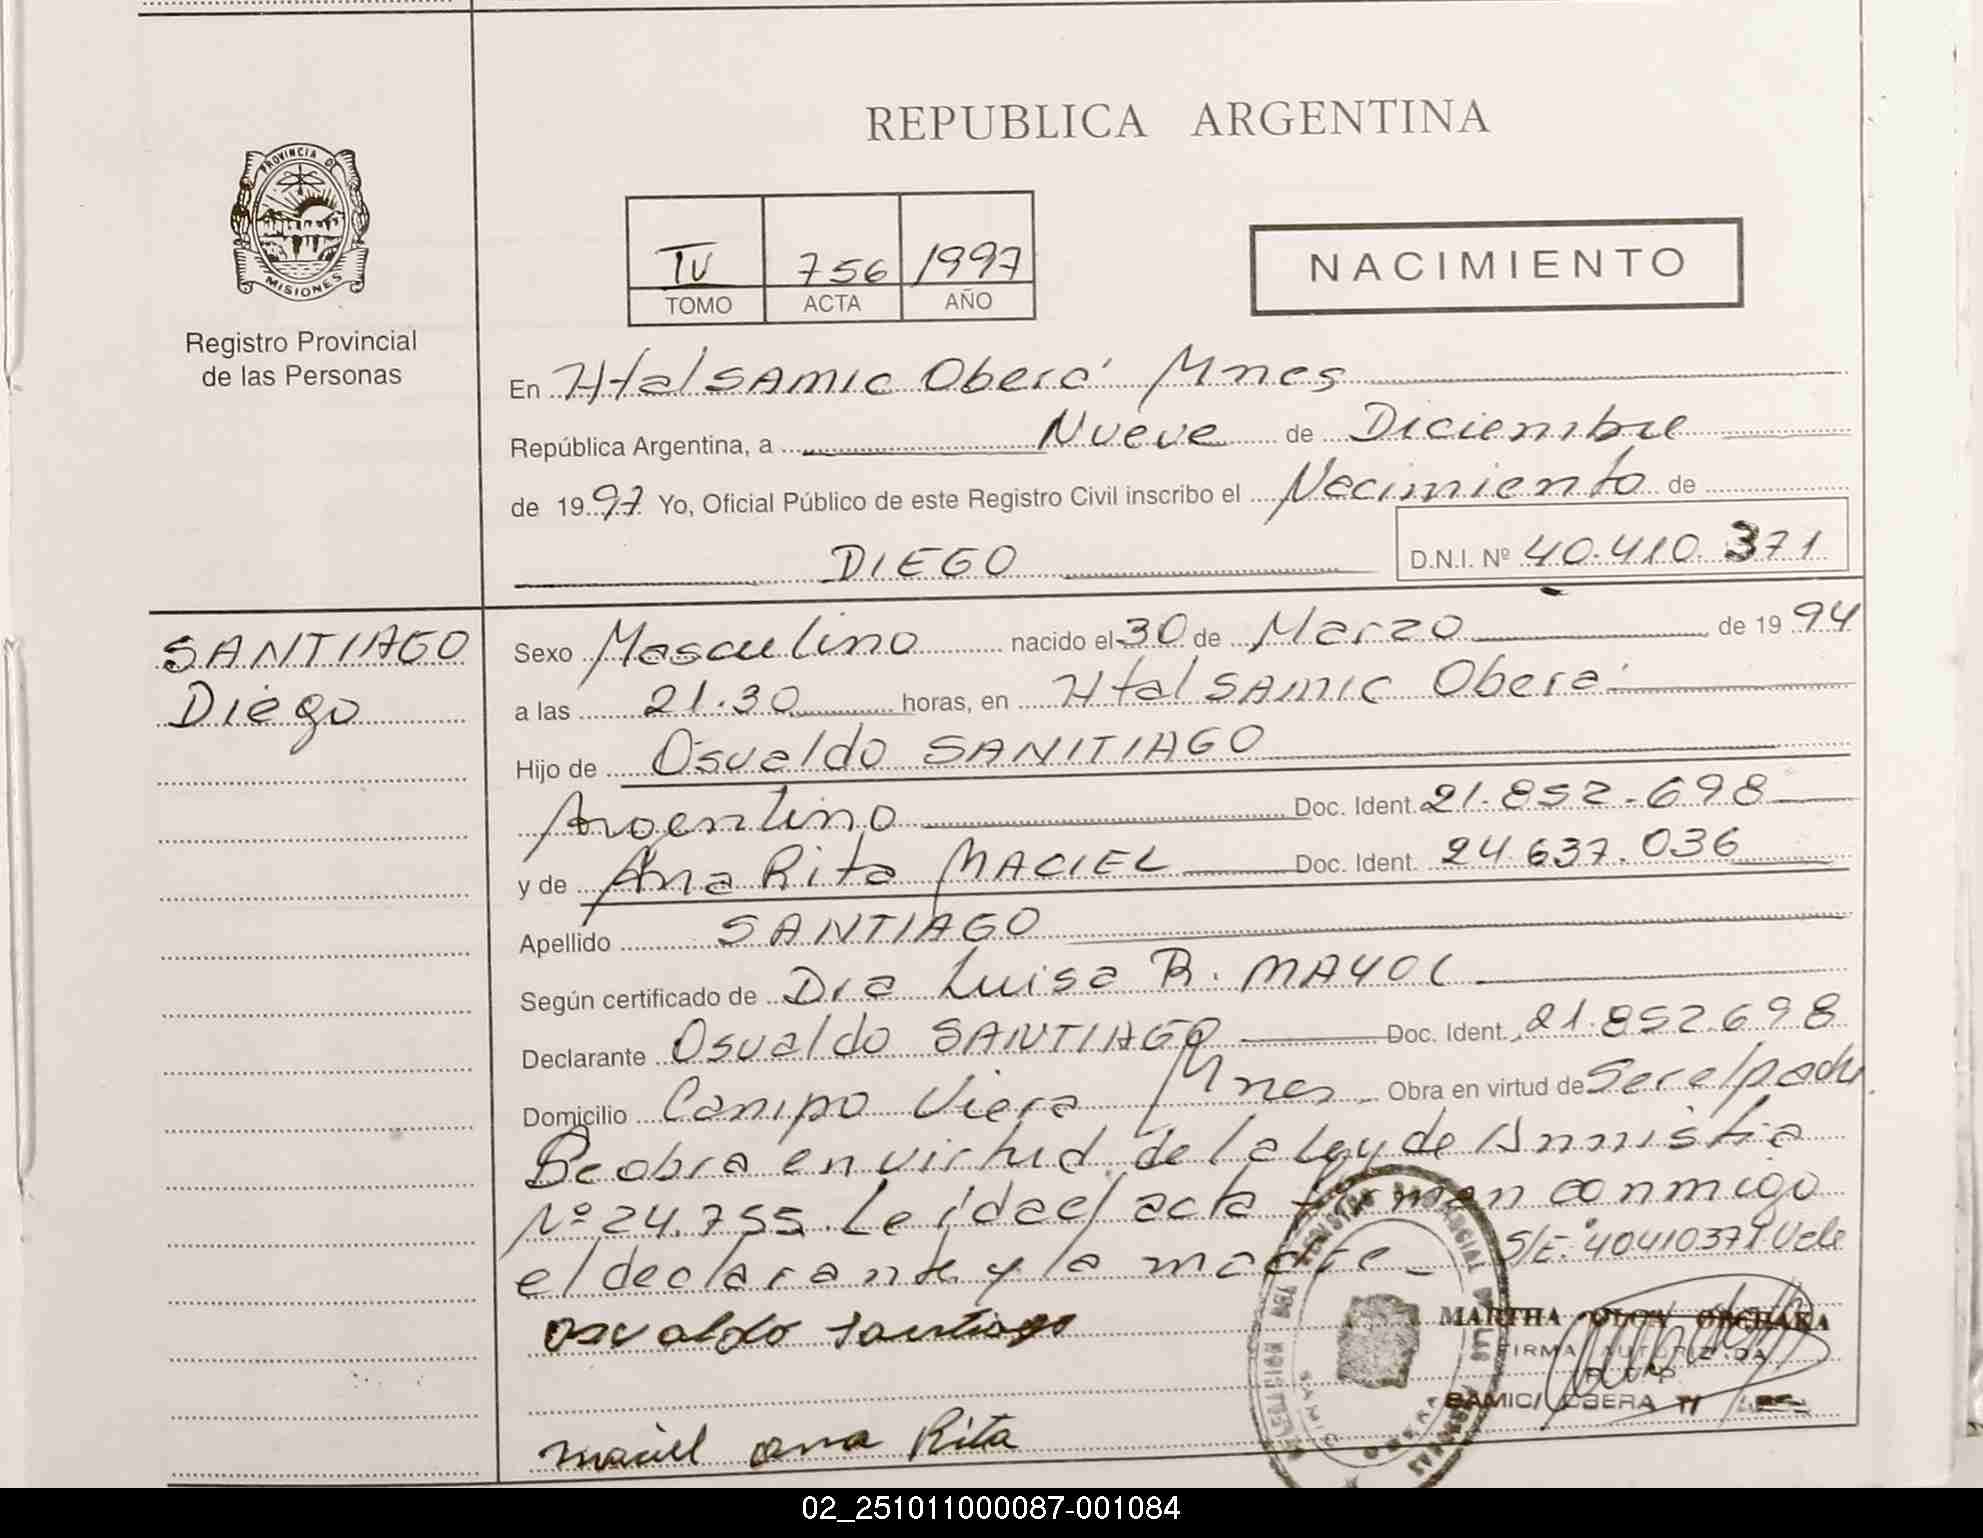 REPUBLICA ARGENTINA
PROVINCIA DE
MISIONES
Registro Provincial
de las Personas
IV 756 1997
TOMO ACTA AÑO
NACIMIENTO
En Htal SAMIC Oberá Mnes
República Argentina, a Nueve de Diciembre
de 1997 Yo, Oficial Público de este Registro Civil inscribo el Nacimiento de
DIEGO D.N.I. Nº 40.410.371
SANTIAGO
Diego
Sexo Masculino nacido el 30 de Marzo de 1994
a las 21.30 horas, en Htal SAMIC Oberá
Hijo de Osvaldo SANITIAGO
Argentino Doc. Ident. 21.852.698
y de Ana Rita MACIEL Doc. Ident. 24.637.036
Apellido SANTIAGO
Según certificado de Dra Luisa R. MAYOL
Declarante Osvaldo SANTIAGO Doc. Ident. 21.852.698
Domicilio Campo Viera Mnes Obra en virtud de Ser el padre
Se obra en virtud de la Ley de Amnistia
Nº 24.755. Leida el acta firman conmigo
el declarante y la madre S/E: 40410371 Vale
Osvaldo Santiago
MARTHA OLGA
FIRMA AUTORIZADA
SAMIC OBERA
maciel ana Rita
02_251011000087-001084